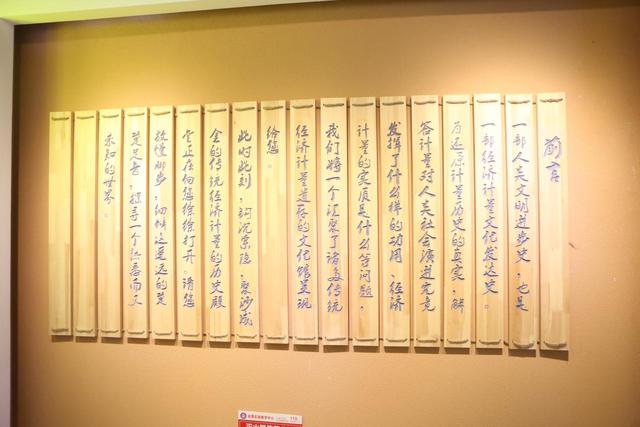 前言
一部人类文明进步史，也是
一部经济计量文化发达史。
为还原计量历史的真实，解
答计量对人类社会演进究竟
发挥了什么样的功用，经济
计量的实质是什么等问题，
我们将一个汇聚了诸多传统
经济计量遗存的文化馆呈现
给您。
此时此刻，钩沉索隐，聚沙成
全的传统经济计量的历史殿
堂正在向您徐徐打开。请您
放慢脚步，细倾这遥远的
楚足音，探寻一个熟悉而又
未知的世界。